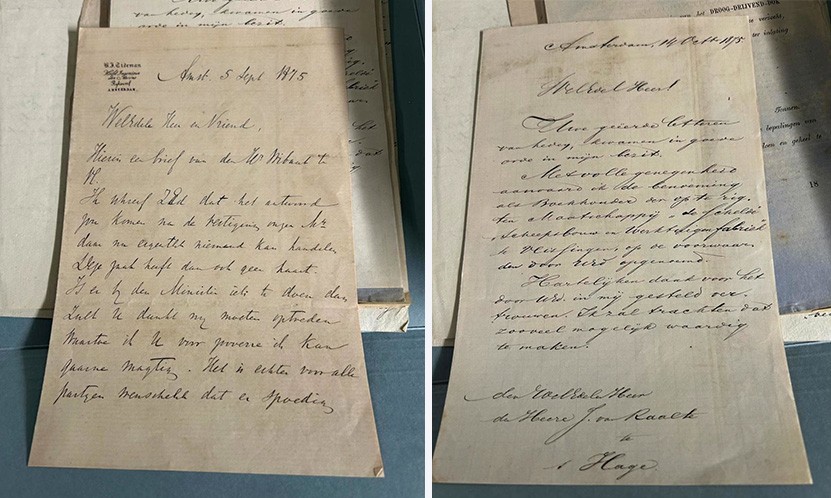 Uwe geëerde letteren
van heden, kwamen in goede
orde in mijn bezit.
B.J. Tideman
AMSTERDAM
Amst. 5 Sept 1875
WelEdele Heer en Vriend,
Hierin een brief van den Hr Wibaut te
Vl.
Ik schreef ZEd dat het antwoord
zou komen na de vestiging onzer Mij
daar nu eigentlik niemand kan handelen
Deze zaak heeft dan ook geen haast.
Is er bij den Minister iets te doen dan
Zult U dunkt mij moeten optreden
Waartoe ik U voor zooverre ik kan
gaarne magtig. Het is echter voor alle
partyen wenschelyk dat er spoedig
DROOG-DRIJVEND-DOK
Amsterdam, 14 Oct 1875
WelEdel Heer!
Uwe geëerde letteren
van heden, kwamen in goede
orde in mijn bezit.
Met volle genegenheid
aanvaard ik de benoeming
als Boekhouder der op te rig-
ten Maatschappij "de Schelde"
Scheepsbouw en Werktuigenfabriek
te Vlissingen, op de voorwaar-
den door UEd opgenoemd.
Hartelijken dank voor het
door UEd. in mij gesteld ver-
trouwen. Ik zal trachten dat
zooveel mogelijk waardig
te maken.
den WelEdelen Heer
den Heere J. van Raalte
te
s Hage
18